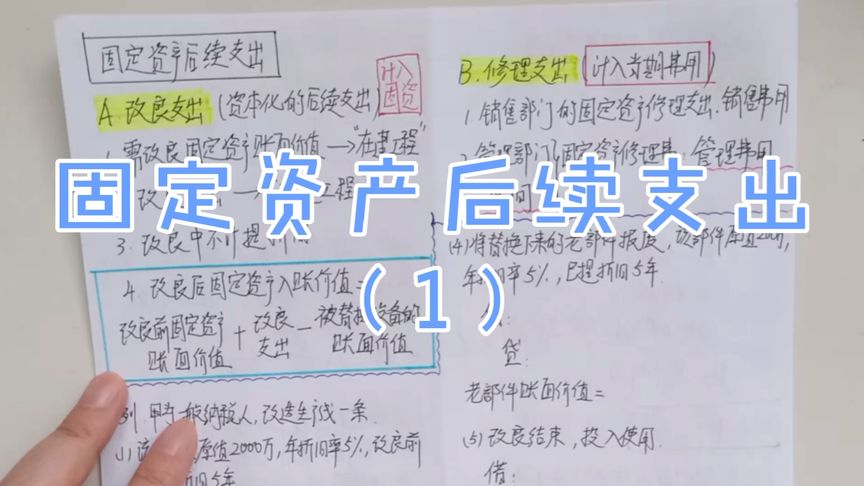 固定资产后续支出
A 改良支出（资本化的后续支出）
计入
固资
1. 需改良固定资产账面价值→"在建工程"
2. 改
工程
3. 改良中不计提
4. 改良后固定资产入账价值=
改良前固定资产账面价值+改良支出-被替换设备的账面价值
一般纳税人，改造生产线一条.
原值2000万，年折旧率5%，改良前
旧5年
B. 修理支出
计入当期费用
1. 销售部门的固定资产修理支出. 销售费用
2. 管理部门固定资产修理费，管理费用
固定资产后续支出
（1）
(4)将替换下来的老部件报废，该部件原值200万，
年折旧率5%，已提折旧5年.
贷：
老部件账面价值=
(5) 改良结束，投入使用.
借：